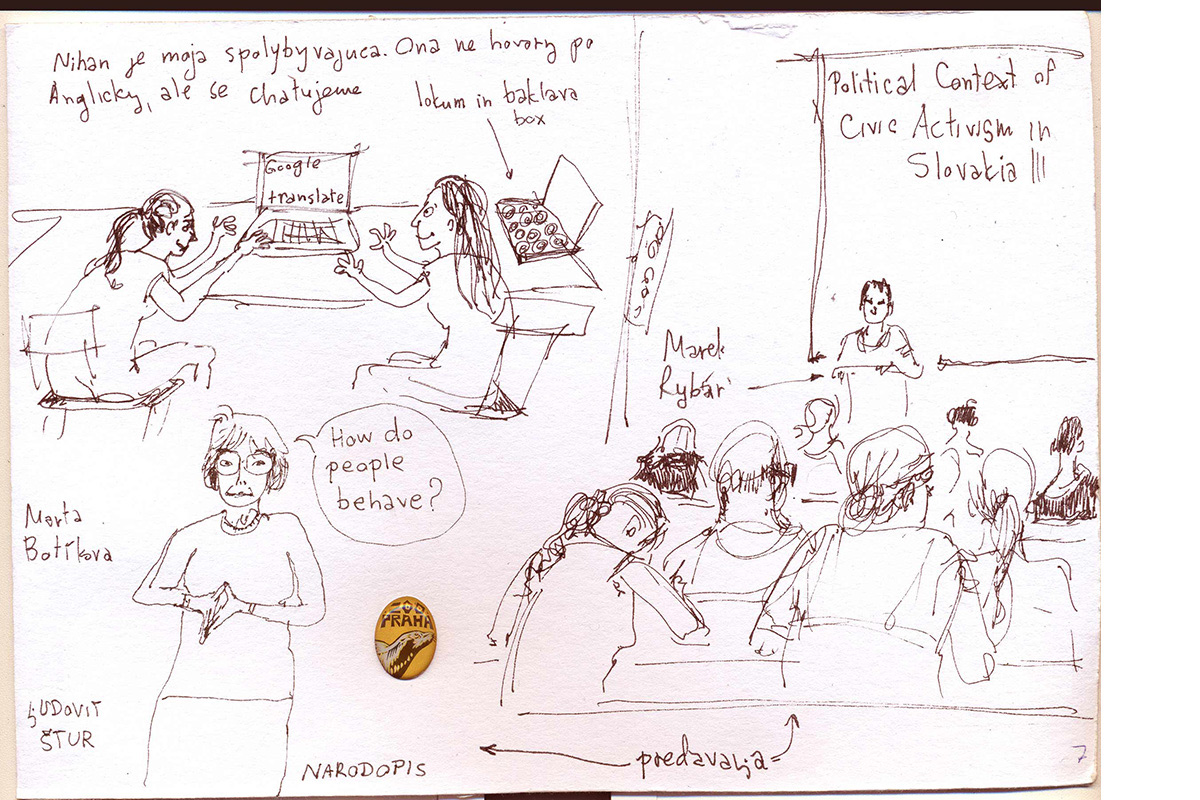 Nihan je moja spolybyvajuca. Ona ne hovory po
Anglicky, ale se chatujeme
lokum in baklava
box
Google
translate
Political Context of
Civic Activism in
Slovakia III
Marek
Rybář
How do
people
behave?
Marta
Botíkova
ZOO
PRAHA
ĽUDOVIT
ŠTUR
NARODOPIS
predavalja
7